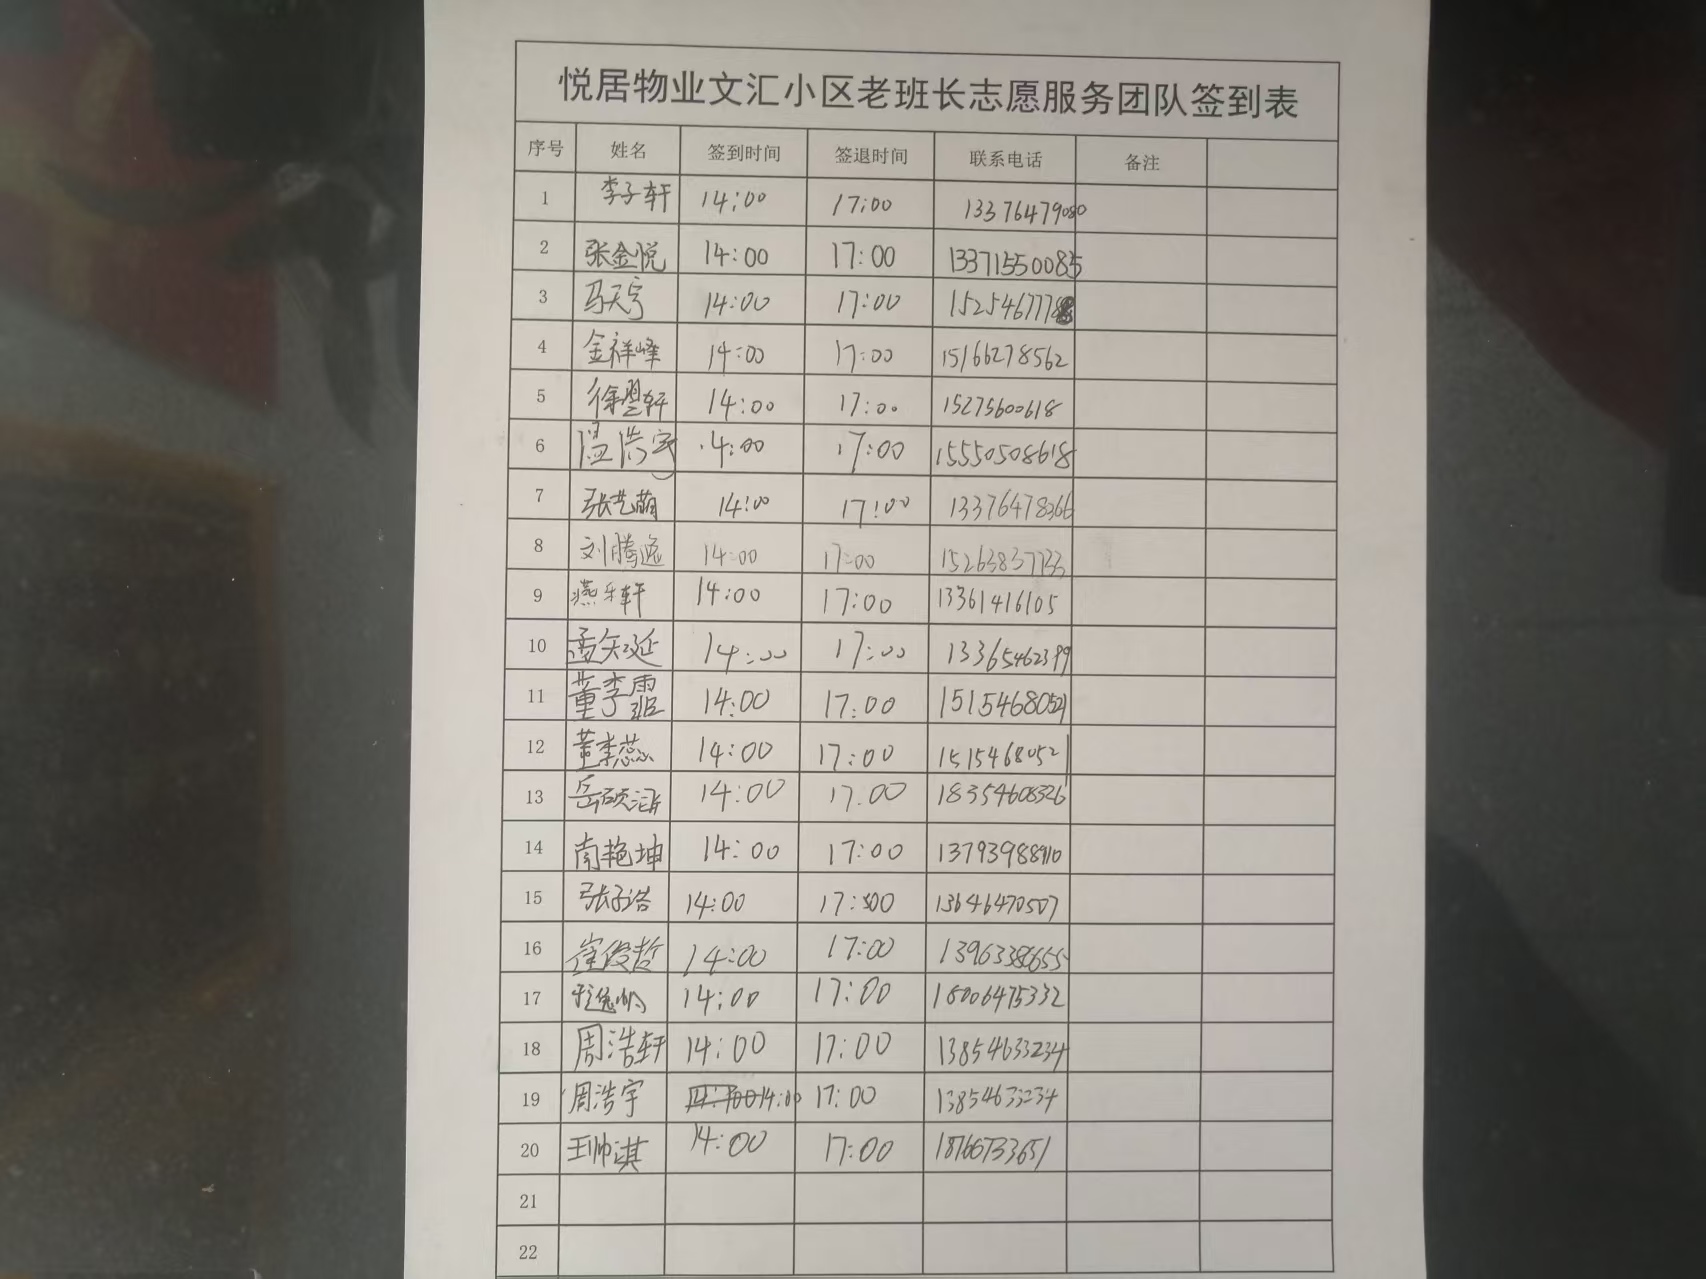 悦居物业文汇小区老班长志愿服务团队签到表
序号 姓名 签到时间 签退时间 联系电话 备注
1 李子轩 14:00 17:00 13376479080
2 张金悦 14:00 17:00 13371550085
3 马天宇 14:00 17:00 1525467778
4 金祥峰 14:00 17:00 15166278562
5 徐翌轩 14:00 17:00 15275600618
6 温浩宇 14:00 17:00 15550508618
7 张艺萌 14:00 17:00 13376478366
8 刘腾逸 14:00 17:00 15263837733
9 燕乐轩 14:00 17:00 13361416105
10 孟矢延 14:00 17:00 13365462399
11 董李霏 14:00 17:00 15154680521
12 董李蕊 14:00 17:00 15154680521
13 岳硕涵 14:00 17:00 18354608326
14 南艳坤 14:00 17:00 13793988910
15 张子浩 14:00 17:00 13646470507
16 崔俊哲 14:00 17:00 13963386655
17 14:00 17:00 18006475332
18 周浩轩 14:00 17:00 13854633234
19 周浩宇 14:00 17:00 13854633234
20 王帅淇 14:00 17:00 18766733651
21
22